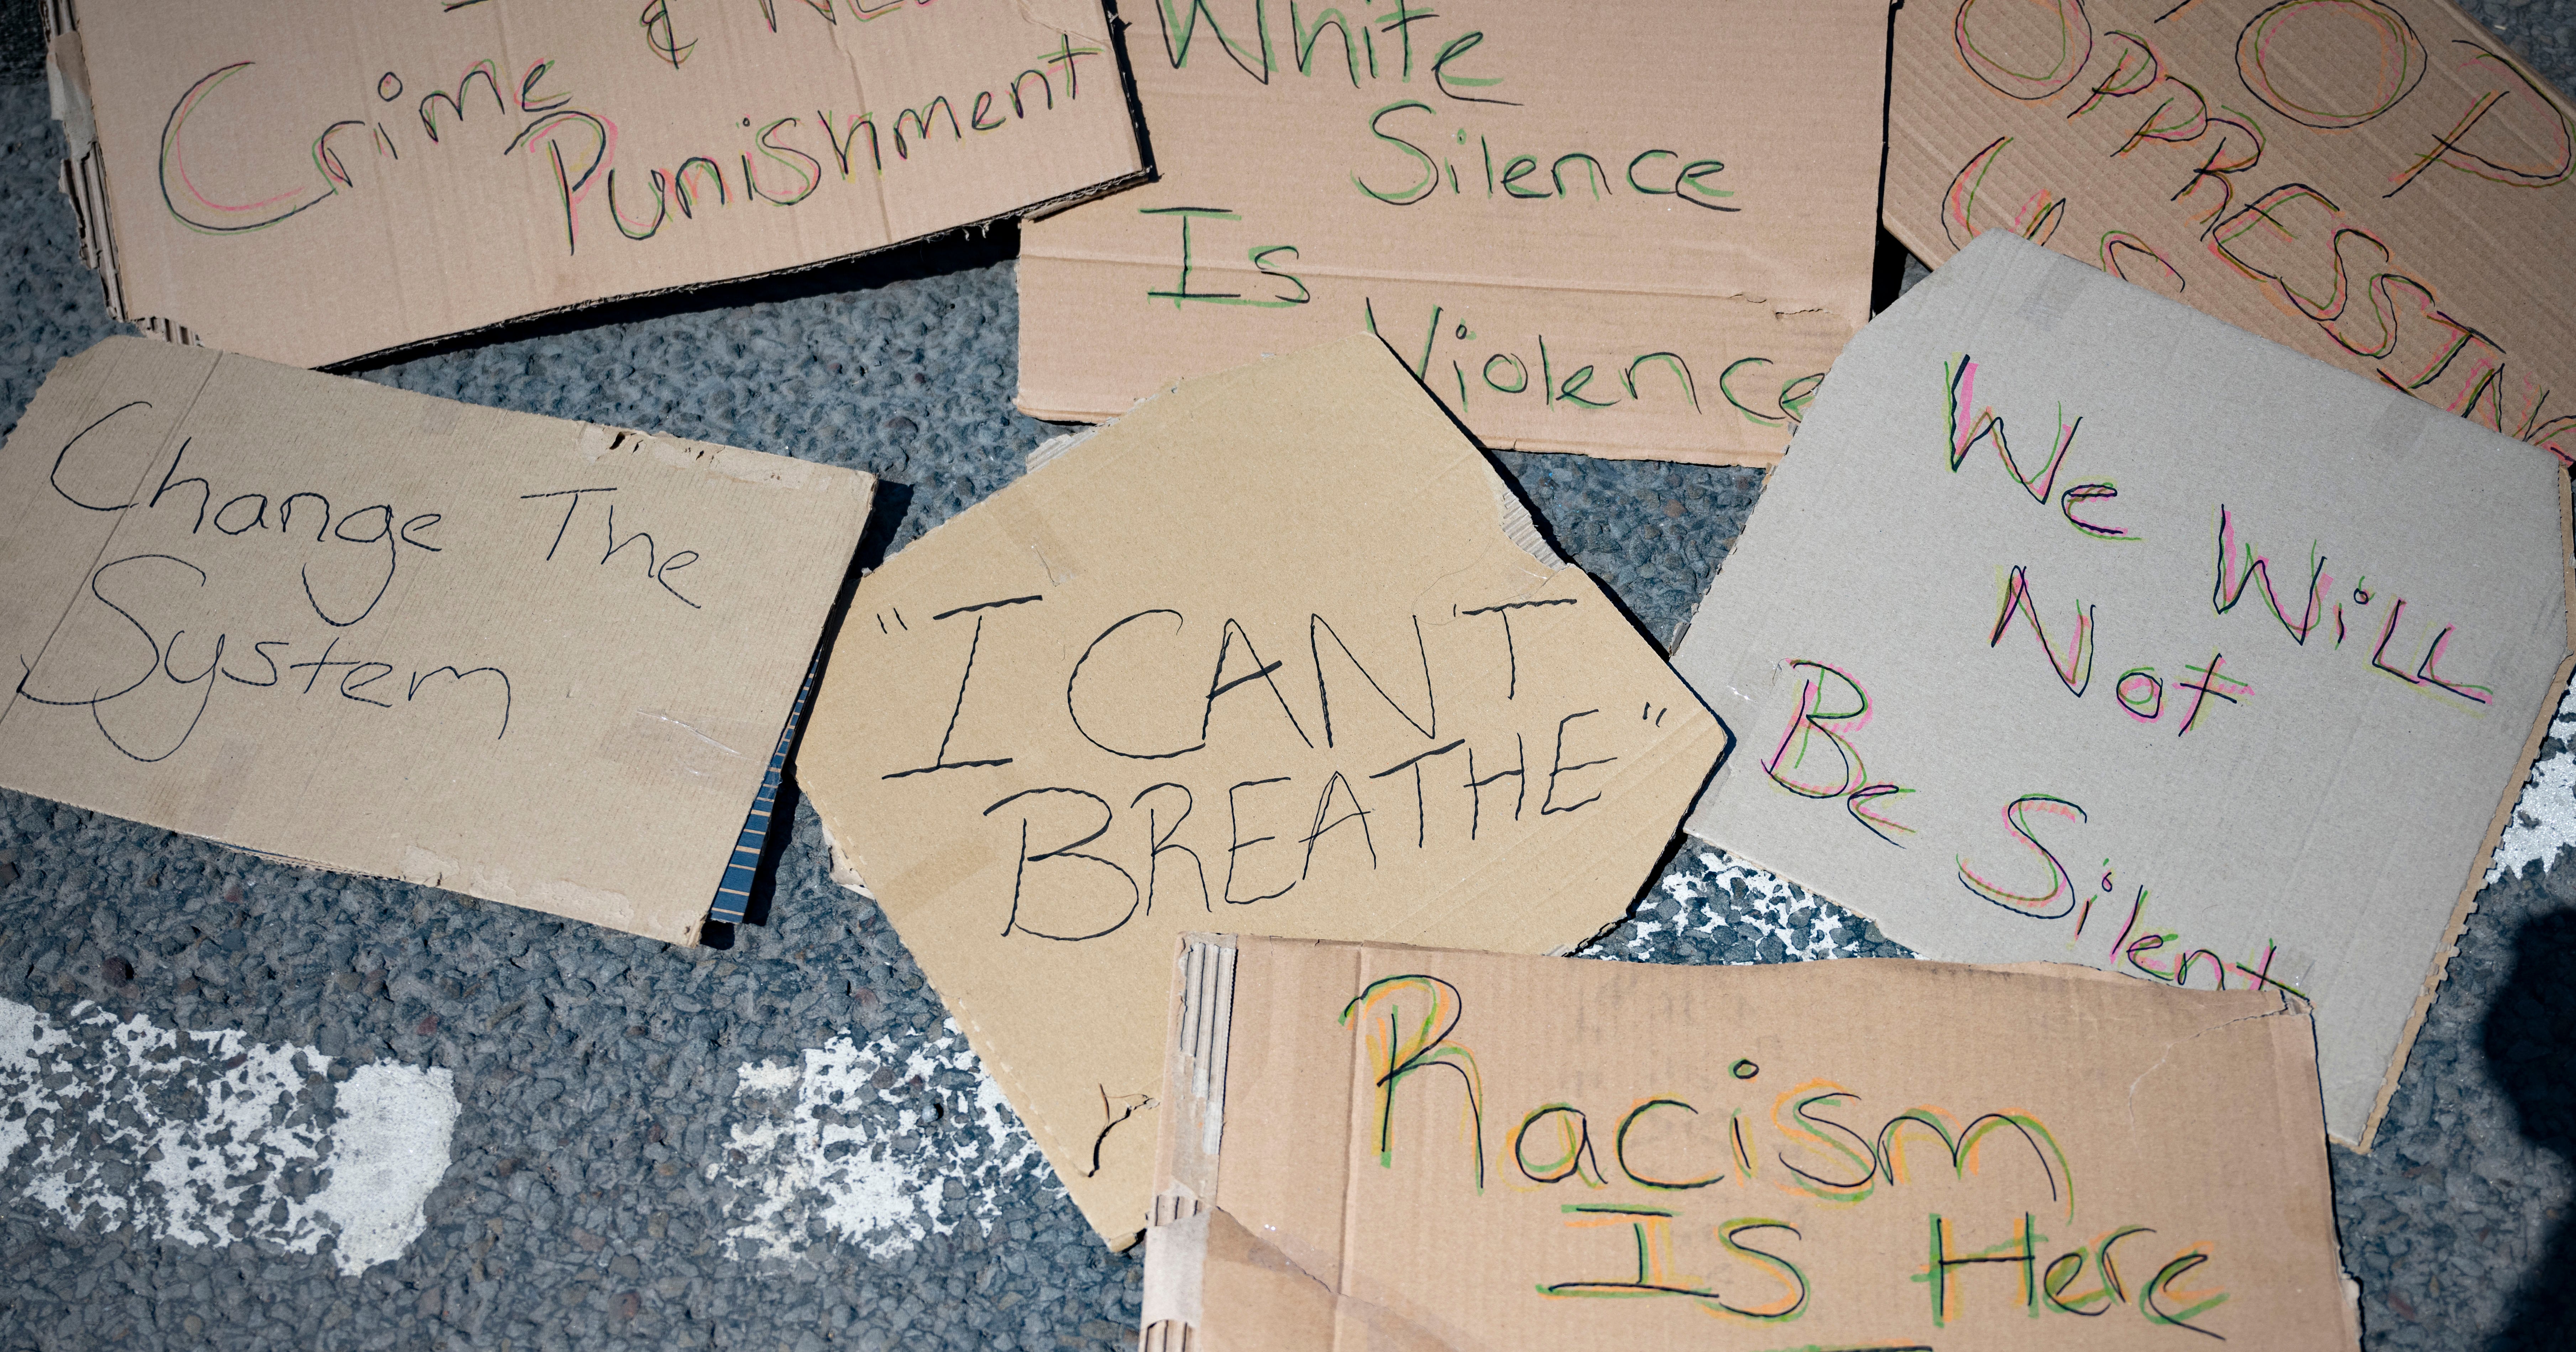 Crime &
Punishment
White
Silence
Is
Violence
OPPRESSING
US
Change The
System
"I CAN'T
BREATHE"
We Will
Not
Be Silent
Racism
Is Here